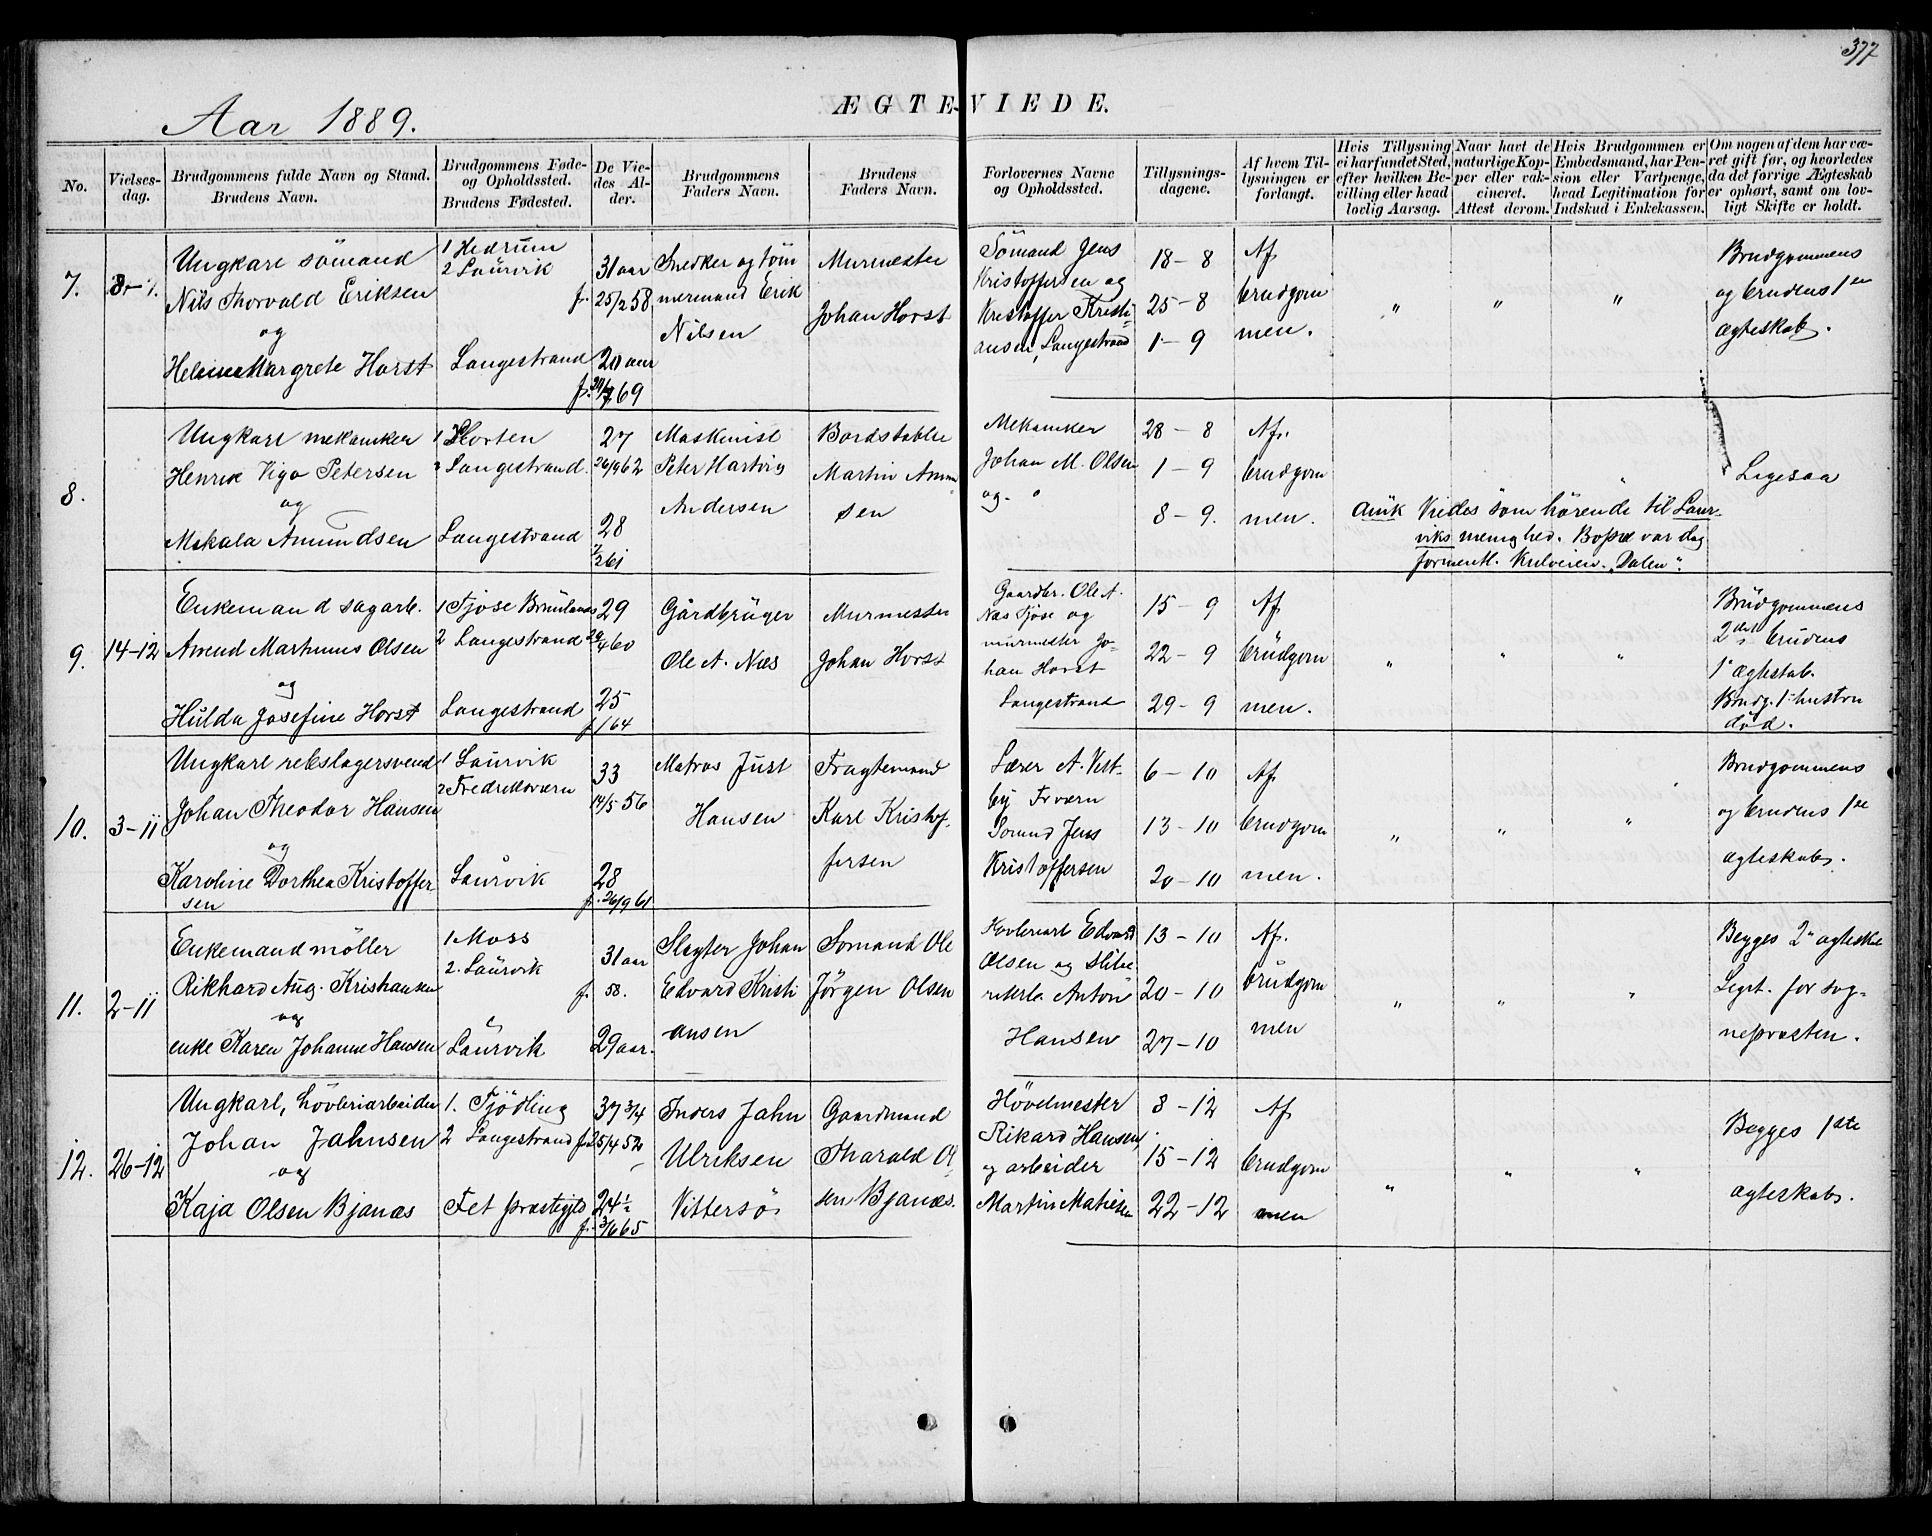 377
Aar 1889.
ÆGTEVIEDE.
No.
Vielses-
dag.
Brudgommens fulde Navn og Stand.
Brudens Navn.
Brudgommens Føde-
og Opholdssted.
Brudens Fødested.
De Vie-
des Al-
der.
Brudgommens
Faders Navn.
Brudens
Faders Navn.
Forlovernes Navne
og Opholdssted.
Tillysnings-
dagene.
Af hvem Til-
lysningen er
forlangt.
Hvis Tillysning
ei har fundet Sted,
efter hvilken Be-
villing eller hvad
lovlig Aarsag.
Naar havt de
naturlige Kop-
per eller vak-
cineret.
Attest derom.
Hvis Brudgommen er
Embedsmand, har Pen-
sion eller Vartpenge,
hvad Legitimation for
Indskud i Enkekassen.
Om nogen af dem har væ-
ret gift før, og hvorledes
da det forrige Ægteskab
er ophørt, samt om lov-
ligt Skifte er holdt.
7.
Ungkarl sömand
Nils Thorvald Eriksen
og
Margrete Horst
1 Hedrum
2 Laurvik
Langestrand
31 aar
f. 25/2 58
20 aar
69
Snedker og töm
mermand Erik
Nilsen
Murmester
Johan Horst
Sömand Jens
Kristoffersen og
Kristoffer Kristi-
ansen, Langestrand
18-8
25-8
1-9
Af
brudgom
men.
" " "
Brudgommens
og brudens 1en
ægteskab.
8.
Ungkarl mekaniker
Henrik Vigo Petersen
og
Mekala Amundsen
1 Horten
2 Langestrand.
Langestrand
27
26/9 62
28
61
Maskinist
Peter Hartvig
Andersen
Bordstabler
Martin Amun
sen
Mekaniker
Johan M. Olsen
og "
28-8
1-9
8-9.
Af.
brudgom
men.
Viedes som hörende til Laur-
viks menighed. Bopæl var dog
"Dalen".
Ligesaa
9.
14-12
Enkemand sagarb.
Amund Martinius Olsen
og
Hulda Josefine Horst
1 Tjose Brunlanes
2 Langestrand
Langestrand
29
60
25
f. 64
Gårdbrüger
Ole A. Næs
Murmester
Johan Horst
Gaardbr. Ole A.
Næs Tjöse og
murmester Jo-
han Horst
Langestrand
15-9
22-9
29-9
Af
brüdgom
men.
" " "
Brüdgommens
2det brudens
1e ægteskab.
Brudg. 1e hustru
död.
10.
3-11
Ungkarl rebslagersvend
Johan Theodor Hansen
og
Karoline Dorthea Kristoffer-
sen
1 Laurvik
2 Fredriksværn
Laurvik
33
14/5 56
28
f. 26/9 61
Matros Just
Hansen
Fragtemand
Karl Kristof-
fersen
Lærer A. Vest-
by Fr værn
Somand Jens
Kristoffersen
6-10
13-10
20-10
Af
brudgom
men.
" " "
Brudgommens
og brudens 1ste
ægteskab.
11.
2-11
Enkemand möller
Rikhard Aug. Kristiansen
og
enke Karen Johanne Hansen
1 Moss
2. Laurvik
Laurvik
31 aar
f. 58.
29 aar.
Slagter Johan
Edvard Kristi
ansen
Somand Ole
Jörgen Olsen
Edvard
Olsen og
Anton
Hansen
13-10
20-10
27-10
Af.
brudgom
men
" " "
Begges 2et ægteskab
for sog-
nepræsten.
12.
26-12
Ungkarl, hövleriarbeider
Johan Jahnsen
og
Kaja Olsen Bjanæs
1. Tjödling
2 Langestrand
Fet præstegjld
37 3/4
25/4 52
24 1/2
f. 3/6 65
Inders Jahn
Ulriksen
Vittersö
Gaardmand
Tharald Ol
sen Bjanæs.
Hövelmester
Rikard Hansen,
og arbeider
Martin Matisen
8-12
15-12
22-12
Af
brudgom
men
" " "
Begges 1ste
ægteskab.